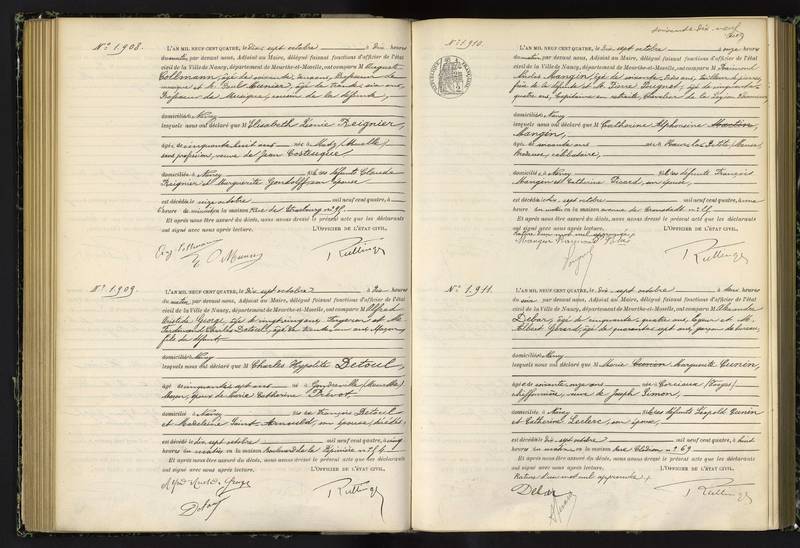 N° 1.908.
L'AN MIL NEUF CENT QUATRE, le dix-sept octobre à dix heures
du matin, par devant nous, Adjoint au Maire, délégué faisant fonctions d'officier de l'état
civil de la Ville de Nancy, département de Meurthe-et-Moselle, ont comparu M Auguste
Collmann, âgé de soixante ans, Professeur de
musique et M. Paul Munier, âgé de trente six ans,
Professeur de Musique, cousin de la défunte,
domiciliés à Nancy
lesquels nous ont déclaré que M Elisabeth Léonie Reignier,
âgée de cinquante huit ans née à Metz (Moselle)
sans profession, veuve de Jean
domiciliée à Nancy fille des défunts Claude
Reignier et Marguerite son épouse
est décédée le seize octobre mil neuf cent quatre, à
heure de en la maison Rue de Strasbourg n°
Et après nous être assuré du décès, nous avons dressé le présent acte que les déclarants
ont signé avec nous après lecture. L'OFFICIER DE L'ÉTAT CIVIL,
Munier
N° 1.909.
L'AN MIL NEUF CENT QUATRE, le dix-sept octobre à dix heures
du matin, par devant nous, Adjoint au Maire, délégué faisant fonctions d'officier de l'état
civil de la Ville de Nancy, département de Meurthe-et-Moselle, ont comparu M Alfred
Aristide George, âgé de vingt cinq ans, forgeron et M.
Ferdinand Charles Detoul, âgé de trente un ans, Maçon,
fils du défunt
domiciliés Nancy
lesquels nous ont déclaré que M Charles Hyppolite Detoul,
âgé de cinquante sept ans né à Gondreville (Meurthe)
Maçon, époux de Marie Catherine Prévot
domicilié à Nancy fils de François Detoul
et Madeleine Saint-Arnould, son épouse, décédés
est décédé le dix sept octobre mil neuf cent quatre, à cinq
heures du matin en la maison Boulevard de la Pépinière n°
Et après nous être assuré du décès, nous avons dressé le présent acte que les déclarants
ont signé avec nous après lecture. L'OFFICIER DE L'ÉTAT CIVIL,
soixante-dix-neuf
N° 1.910.
RÉPUBLIQUE FRANÇAISE
L'AN MIL NEUF CENT QUATRE, le dix-sept octobre à onze heures
du matin, par devant nous, Adjoint au Maire, délégué faisant fonctions d'officier de l'état
civil de la Ville de Nancy, département de Meurthe-et-Moselle, ont comparu M Raimond
Nicolas Mangin, âgé de soixante dix ans, tailleur de pierres,
frère de la défunte et M. Pierre âgé de cinquante
quatre ans, Capitaine en retraite, Chevalier de la Légion d'honneur
domiciliés à Nancy
lesquels nous ont déclaré que M Catherine Alphonsine
Mangin,
âgée de soixante ans née à
Brodeuse, célibataire,
domiciliée à Nancy fille des défunts François
Mangin et Catherine Picard, son épouse,
est décédée le dix sept octobre mil neuf cent quatre, à une
heure du matin en la maison avenue de n°
Et après nous être assuré du décès, nous avons dressé le présent acte que les déclarants
ont signé avec nous après lecture. L'OFFICIER DE L'ÉTAT CIVIL,
Rature d'un mot nul approuvée
Mangin
N° 1.911.
L'AN MIL NEUF CENT QUATRE, le dix-sept octobre à deux heures
du soir, par devant nous, Adjoint au Maire, délégué faisant fonctions d'officier de l'état
civil de la Ville de Nancy, département de Meurthe-et-Moselle, ont comparu M Alexandre
Debar, âgé de cinquante quatre ans, et M.
Albert Gérard, âgé de quarante sept ans, garçon de bureau,
domiciliés à Nancy
lesquels nous ont déclaré que M Marie Cunin Marguerite Cunin,
âgée de soixante onze ans née à Corcieux (Vosges)
chiffonnière, veuve de Joseph Simon,
domiciliée à Nancy fille des défunts Léopold Cunin
et Catherine Leclerc, son épouse,
est décédée le dix-sept octobre mil neuf cent quatre, à huit
heures du matin en la maison Rue Clodion n° 69
Et après nous être assuré du décès, nous avons dressé le présent acte que les déclarants
ont signé avec nous après lecture. L'OFFICIER DE L'ÉTAT CIVIL,
Rature d'un mot nul approuvée
Debar